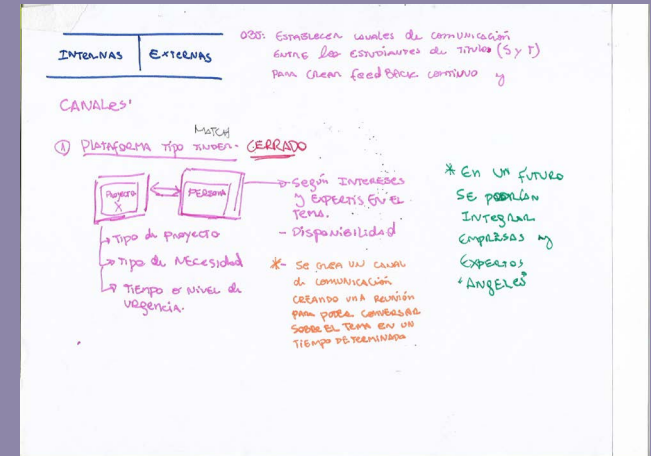 INTERNAS | EXTERNAS
OBJ: ESTABLECER canales de comunicación
ENTRE los ESTUDIANTES de TITULO (S y T)
PARA CREAR feedBACK continuo y
CANALES:
MATCH
① PLATAFORMA TIPO TINDER - CERRADO
PROYECTO X
PERSONA
→ Según INTERESES
y EXPERTIS EN EL
TEMA.
- DISPONIBILIDAD
→ TIPO de PROYECTO
→ TIPO de NECESIDAD
→ TIEMPO O NIVEL de
URGENCIA.
*- SE CREA UN CANAL
de COMUNICACIÓN
CREANDO UNA REUNIÓN
PARA PODER CONVERSAR
SOBRE EL TEMA EN UN
TIEMPO DETERMINADO
* EN UN FUTURO
SE PODRÍAN
INTEGRAR
EMPRESAS y
EXPERTOS
"ANGELES"